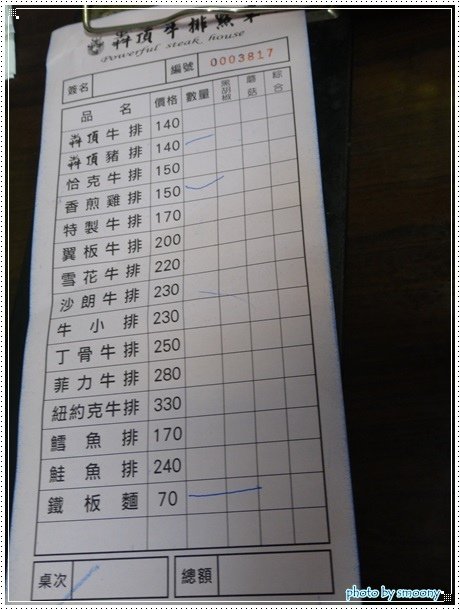 犇頂牛排點單
Powerful steak house
簽名 編號 0003817
品名 價格 數量 黑胡椒 蘑菇 綜合
犇頂牛排 140
犇頂豬排 140
恰克牛排 150
香煎雞排 150
特製牛排 170
翼板牛排 200
雪花牛排 220
沙朗牛排 230
牛小排 230
丁骨牛排 250
菲力牛排 280
紐約克牛排 330
鱈魚排 170
鮭魚排 240
鐵板麵 70
桌次 總額
photo by smoony